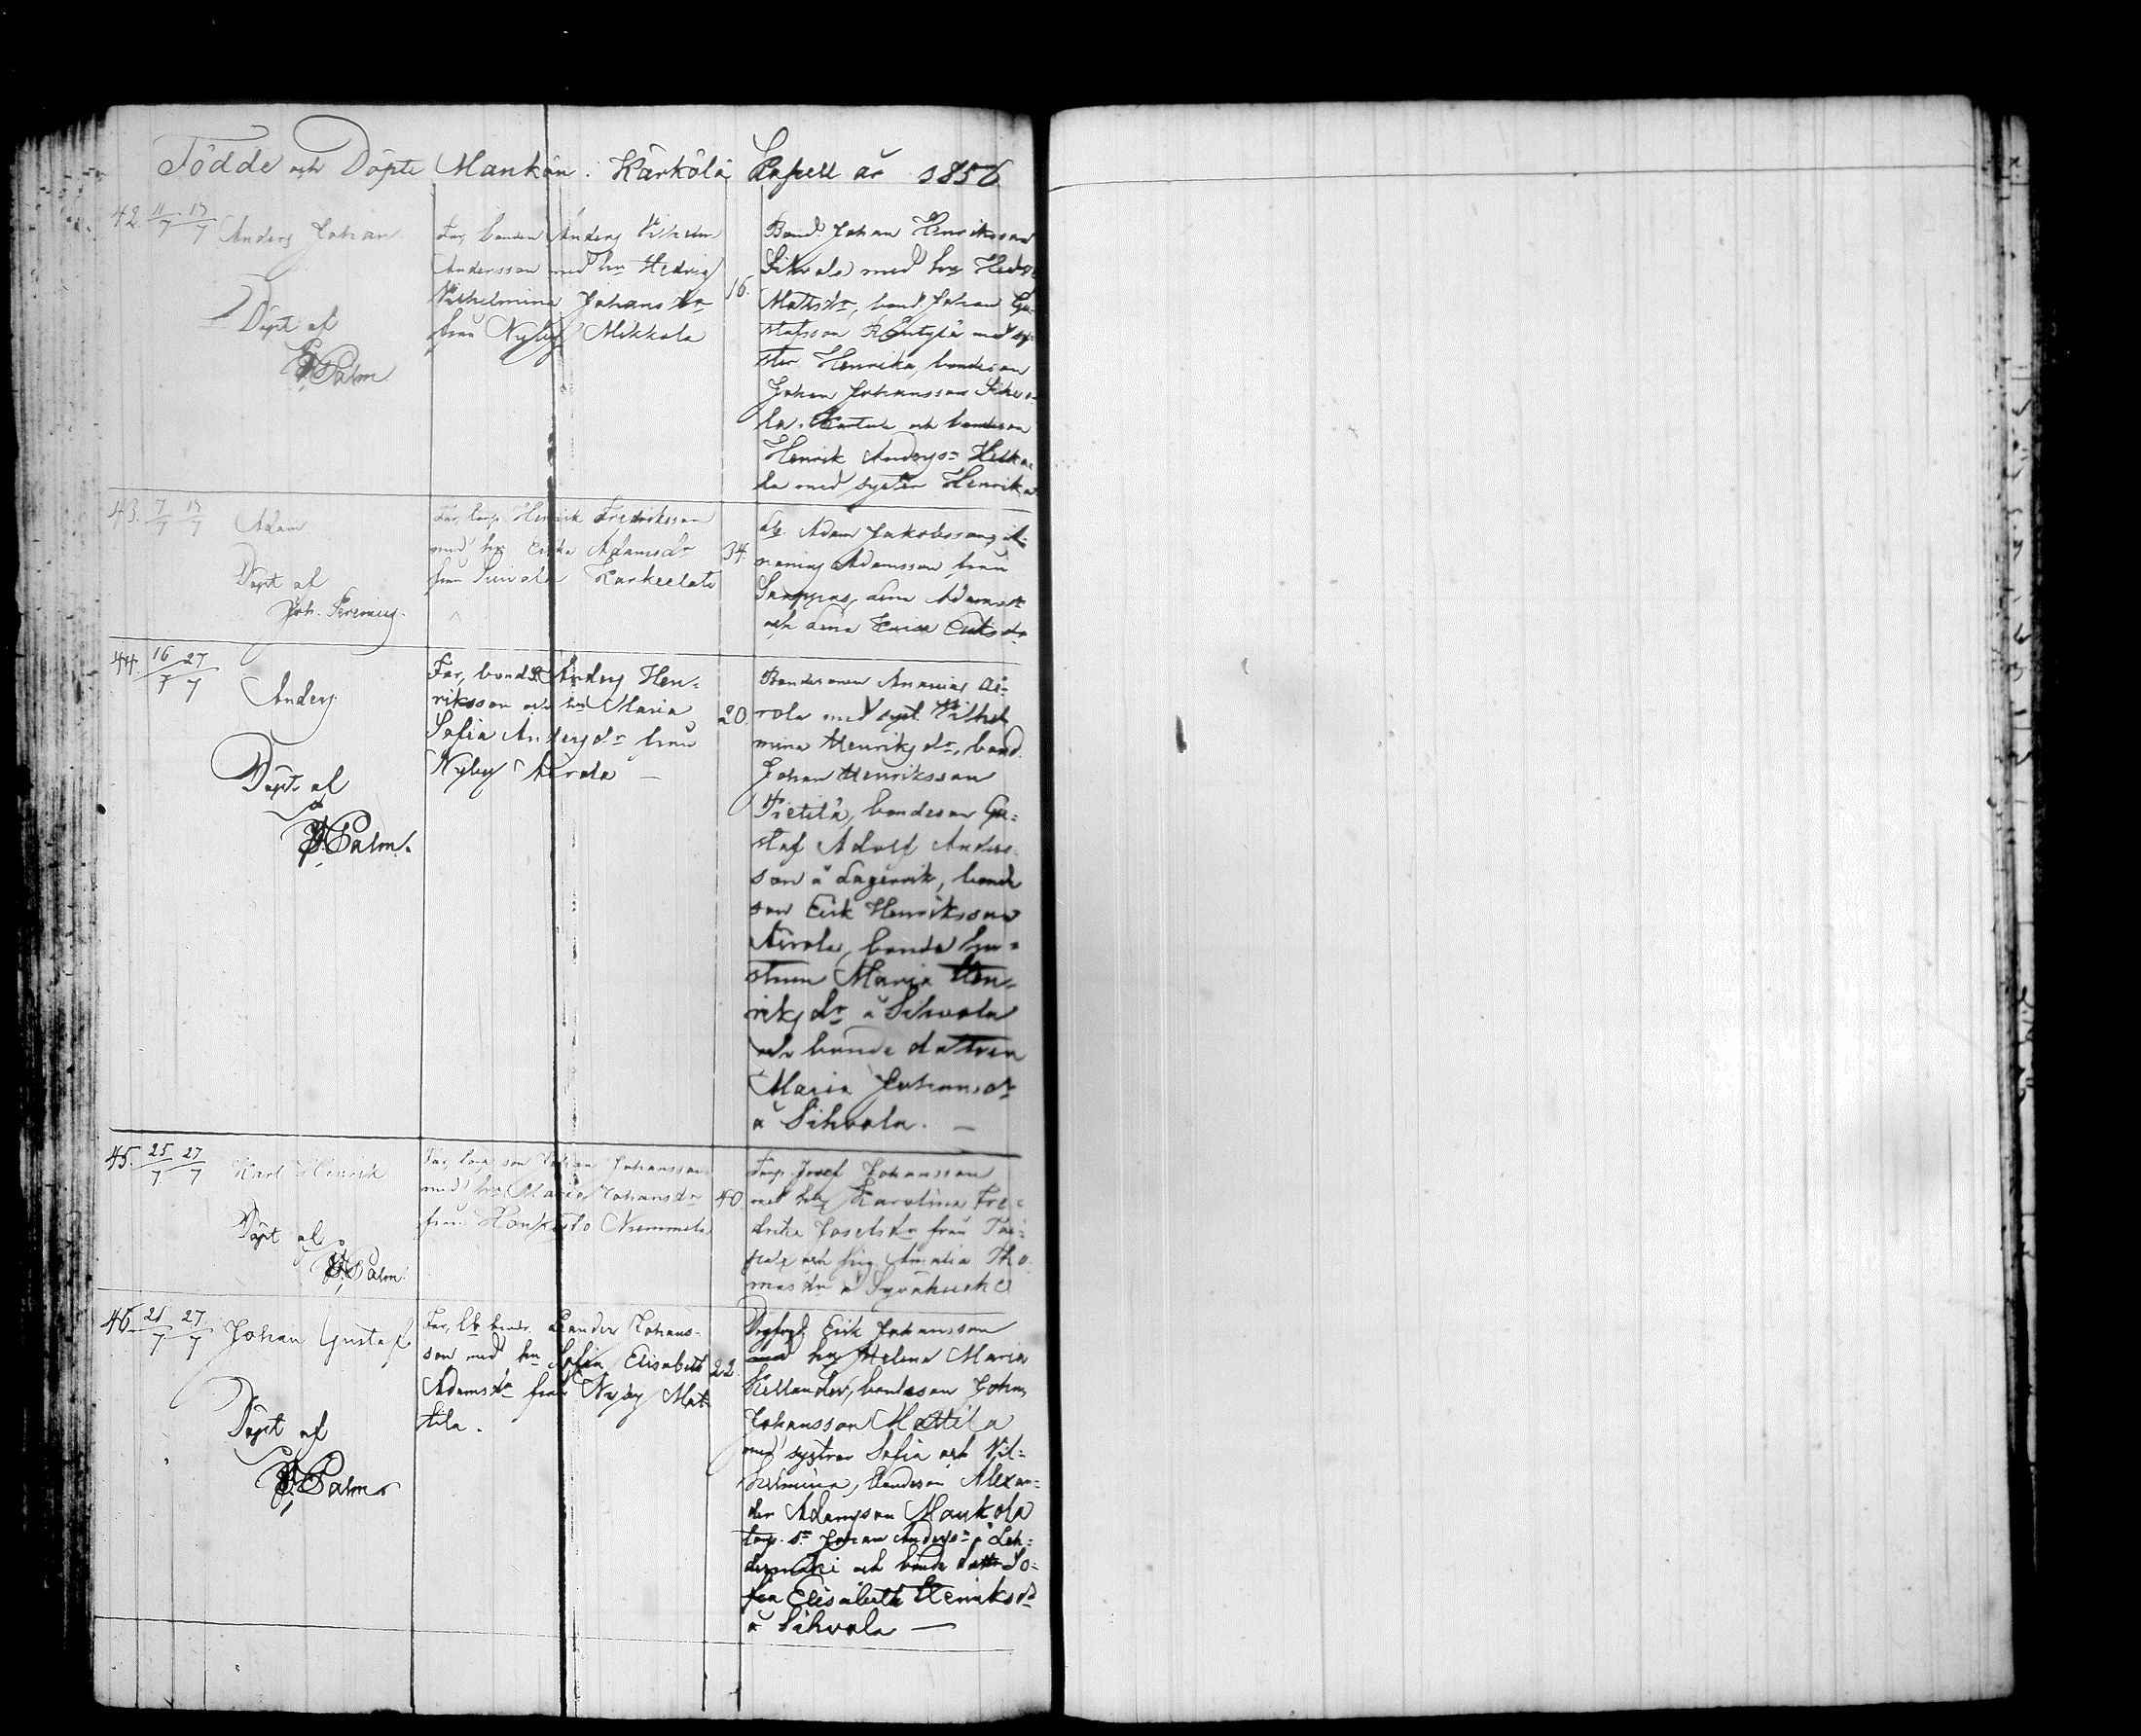 Födde och Döpte Mankön i Kärkölä Kapell år 1856
42. 11/7 13/7 Anders Johan
Döpt af
Palm
Far, bonden Anders Vilhelm
Andersson med hu Hedvig
Vilhelmina Johans dr
från Nyby Mikkola
16.
Bond. Johan Henriksson
Sihvola med hu Hedv.
Matts dr, bond. Johan Gu-
stafsson Räntylä med sy-
ster Henrika, bondeson
Johan Johansson Sihvo-
la och bondeson
Henrik Anderss:n
la med syster Henrika
43. 7/7 13/7 Adam
Döpt af
Joh.
Far, torp. Henrik Fredriksson
med hu Adams dr
från
34.
Adam Jakobsson,
Adamsson från
Lena Adams dr
och Lena Eriks dr
44. 16/7 27/7 Anders
Döpt af
Palm.
Far, bonden Anders Hen-
riksson och hu Maria
Sofia Anders dr från
Nyby Airola —
20.
Bondesonen Ananias Ai-
rola med syst. Vilhel-
mina Henriks dr, bond.
Johan Henriksson
Pietilä, bondeson Gu-
staf Adolf Anders-
son å Lagervik, bonde
son Erik Henriksson
Airola, bonde hu-
strun Maria Hen-
riks dr å Sihvola
och bonde dottren
Maria Johans dr
å Sihvola. —
45. 25/7 27/7 Karl Henrik
Döpt af
Palm.
Far, torp. son Johan Johansson
med hu Maria Johans dr
från Niemmelä
40.
Torp. Josef Johansson
med hu Karolina Fre-
drika Josefs dr från
och pig. Amalia Tho-
mas dr å
46. 21/7 27/7 Johan Gustaf
Döpt af
Palm
Far, Leander Johans-
son med hu Sofia Elisabeth
Adams dr från Nyby Mat-
tila.
22.
Erik Johansson
med hu Helena Maria
Kellander, bondeson Johan
Johansson Mattila
med systrar Sofia och Vil-
helmina, bondeson Alexan-
der Adamsson Maukola
torp. s:n Johan Anders:n å Leh-
desmäki och bonde dottr. So-
fia Elisabeth Henriks dr
å Sihvola —